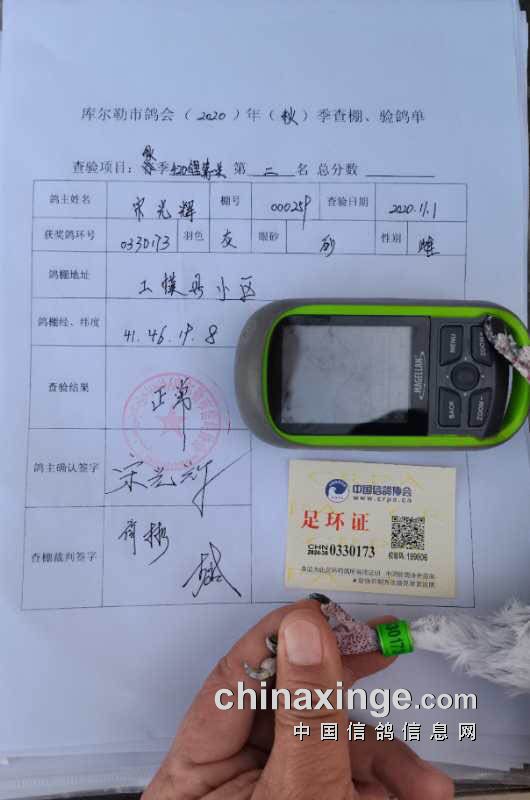 库尔勒市鸽会(2020)年(秋)季查棚、验鸽单
查验项目: 秋季 第 二 名 总分数
鸽主姓名 宋光辉 棚号 000259 查验日期 2020.11.1
获奖鸽环号 0330173 羽色 灰 眼砂 砂 性别 雌
鸽棚地址 小区
鸽棚经、纬度 41.46.19.8
查验结果 正常
鸽主确认签字 宋光辉
查棚裁判签字
MAGELLAN
MENU
ZOOM
BACK
ZOOM-
中国信鸽协会
www.crpa.cn
足环证
CHN 0330173
校验码 199606
30173
chinaxinge.com
中国信鸽信息网